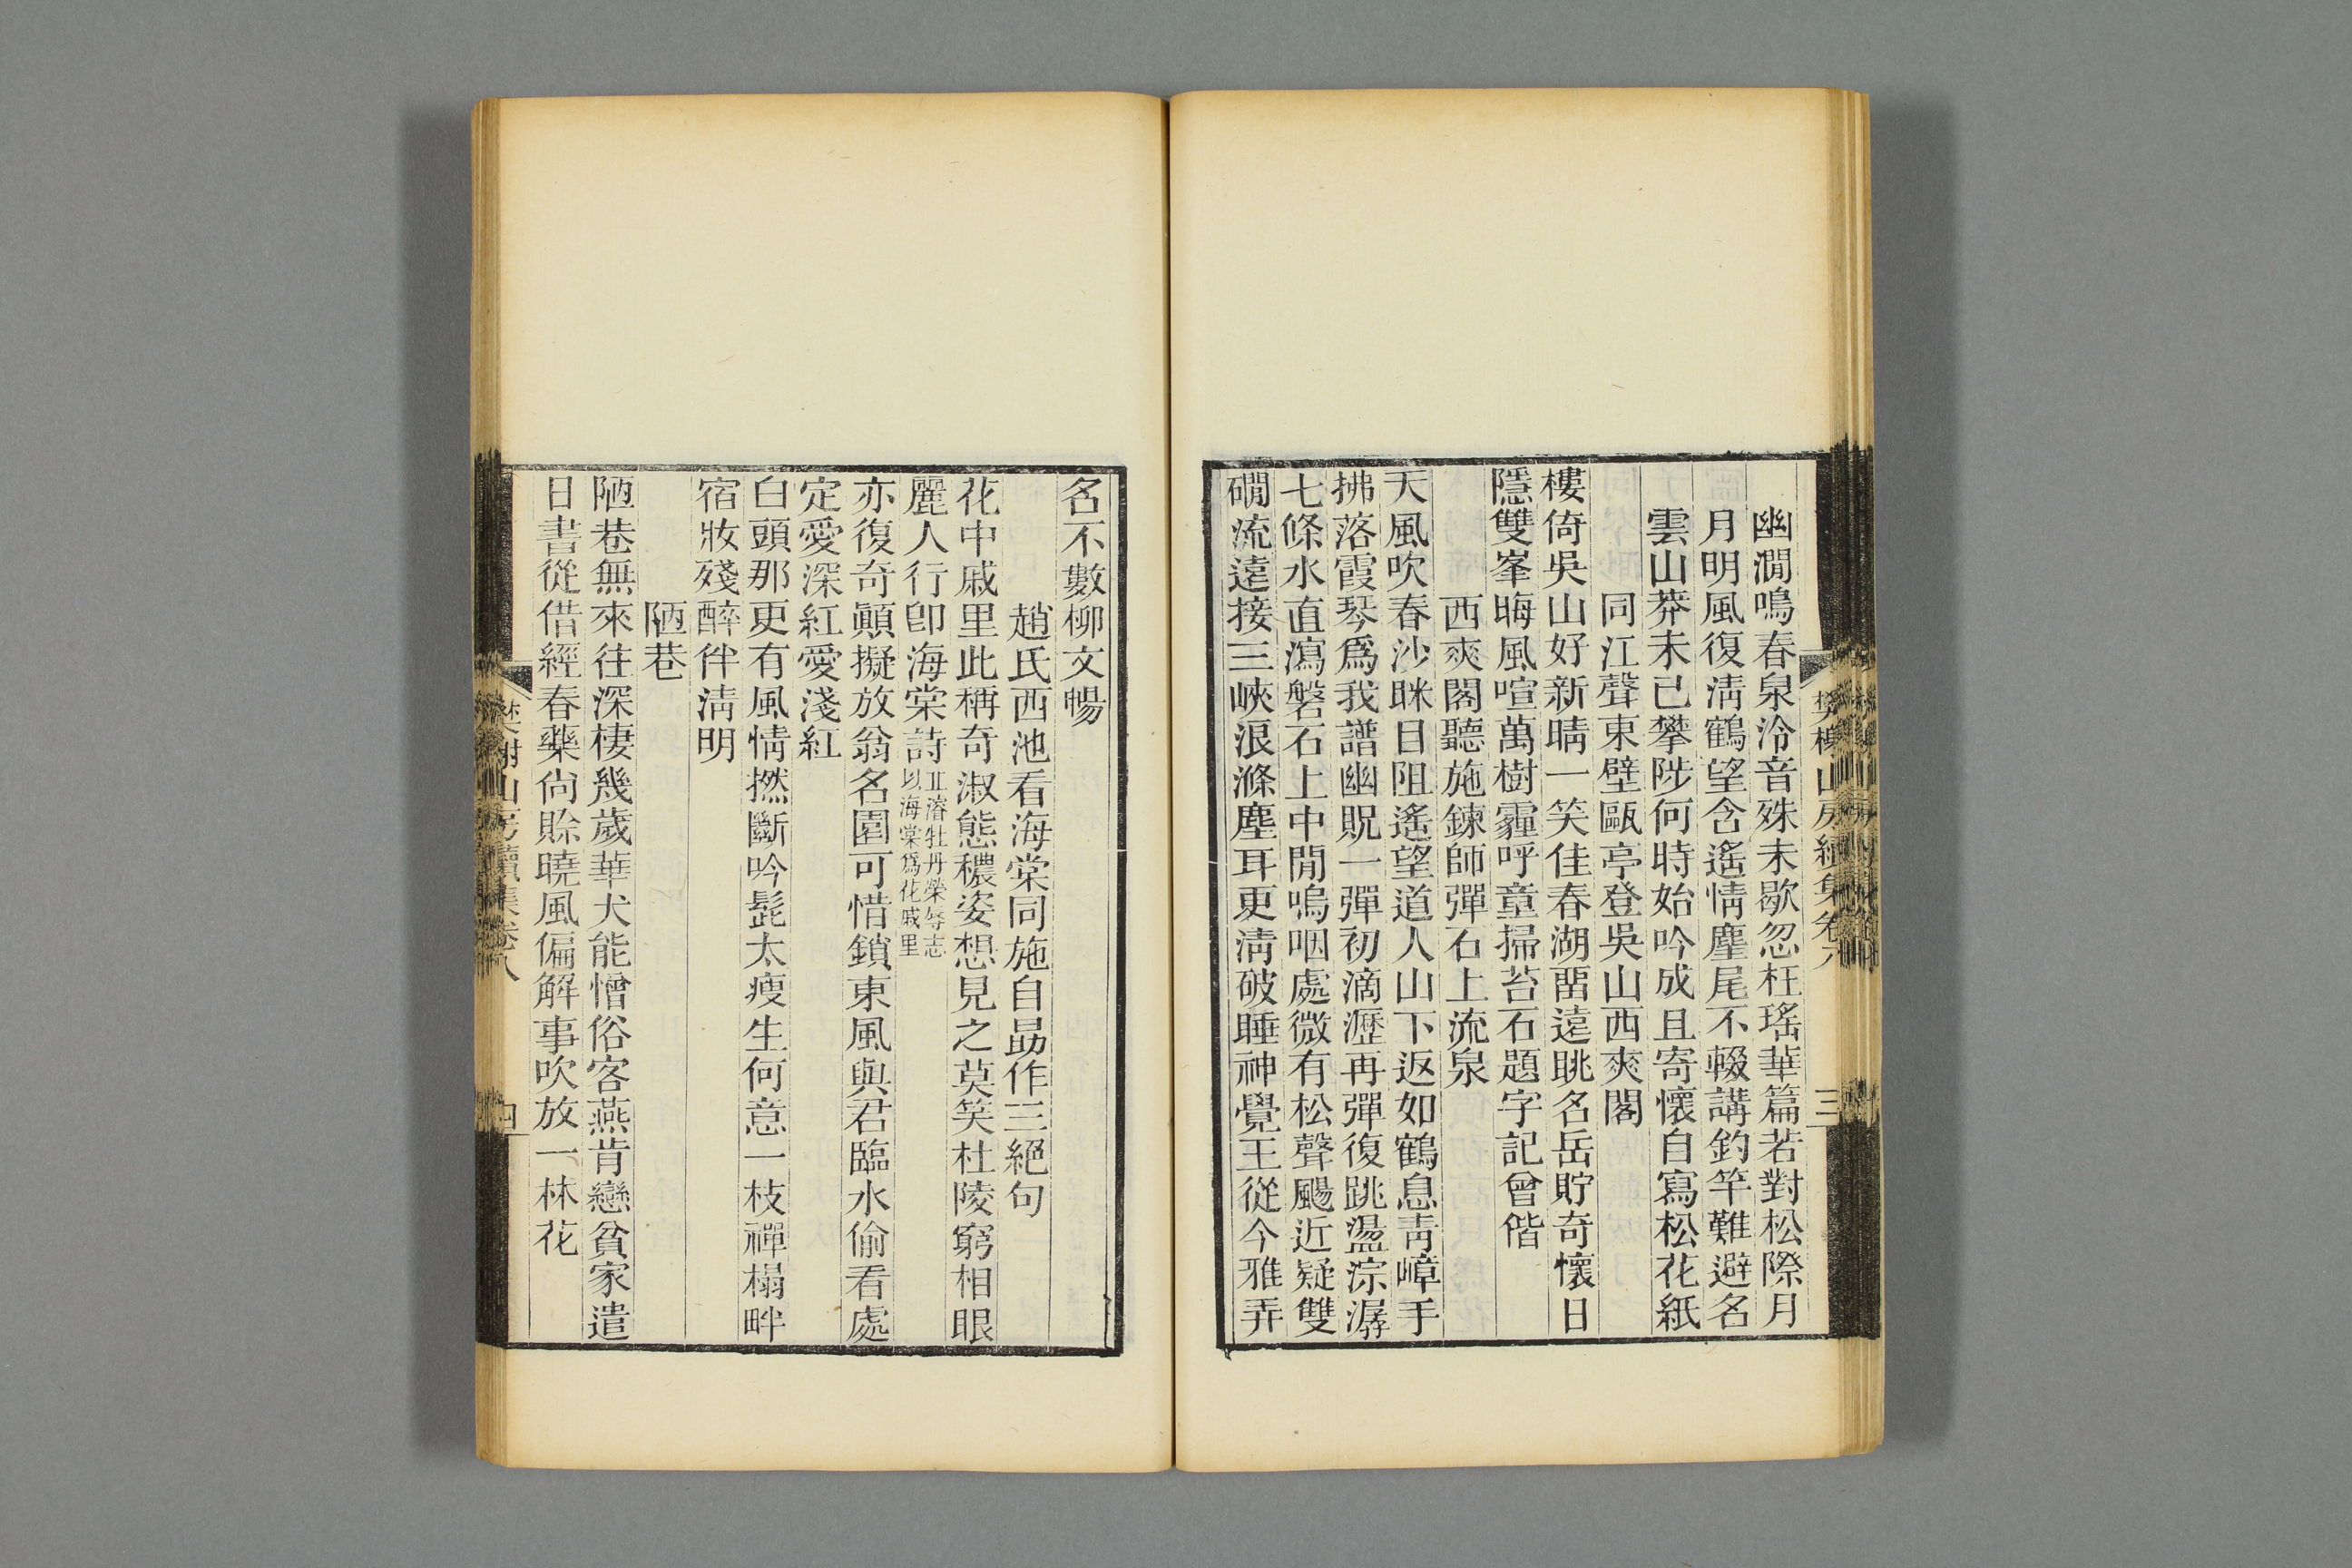 幽澗鳴春泉泠音殊未歇忽枉瑤華篇若對松際月
月明風復淸鶴望含遙情麈尾不輟講釣竿難避名
雲山莽未已攀陟何時始吟成且寄懷自寫松花紙
同江聲東壁甌亭登吳山西爽閣
樓倚吳山好新晴一笑佳春湖畱遠眺名岳貯奇懷日
隱雙峯晦風喧萬樹霾呼童掃苔石題字記曾偕
西爽閣聽施鍊師彈石上流泉
天風吹春沙眯目阻遙望道人山下返如鶴息靑嶂手
拂落霞琴爲我譜幽貺一彈初滴瀝再彈復跳盪淙潺
七條水直瀉磐石上中閒嗚咽處微有松聲颺近疑雙
磵流遠接三峽浪滌塵耳更淸破睡神覺王從今雅弄
樊榭山房續集卷八
三
名不數柳文暢
趙氏西池看海棠同施自勗作三絕句
花中戚里此稱奇淑態穠姿想見之莫笑杜陵窮相眼
麗人行卽海棠詩
丘濬牡丹榮辱志
以海棠爲花戚里
亦復奇顚擬放翁名園可惜鎖東風與君臨水偷看處
定愛深紅愛淺紅
白頭那更有風情撚斷吟髭太瘦生何意一枝禪榻畔
宿妝殘醉伴淸明
陋巷
陋巷無來往深棲幾歲華犬能憎俗客燕肯戀貧家遣
日書從借經春藥尙賒曉風偏解事吹放一林花
樊榭山房續集卷八
四